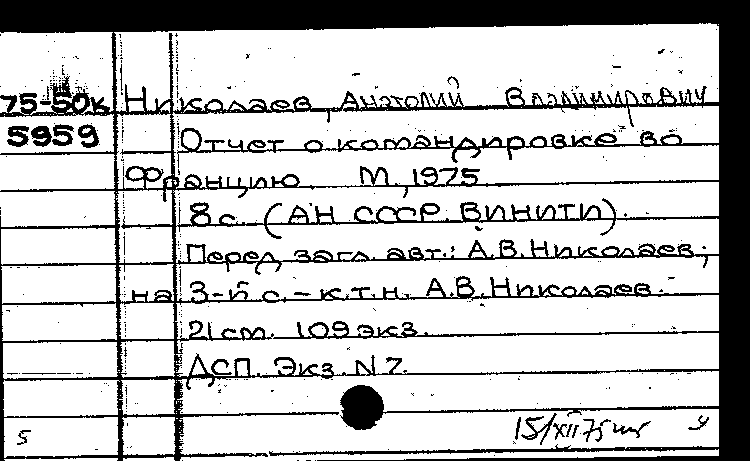 75-50к Николаев, Анатолий Владимирович
5959 Отчет о командировке во
Францию. М., 1975.
8 с. (АН СССР. ВИНИТИ).
Перед загл. авт.: А.В.Николаев;
на 3-й с. – к.т.н. А.В.Николаев.
21 см. 109 экз.
ДСП. Экз. N 7.
5 15/XII 75